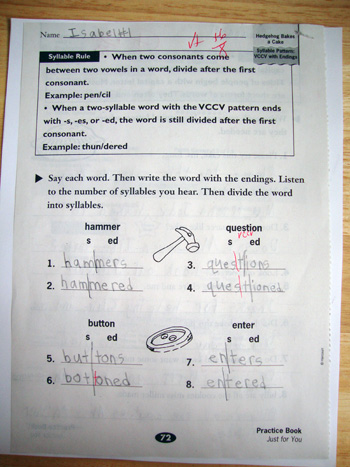 Name Isabelle
Hedgehog Bakes
a Cake
Syllable Pattern:
VCCV with Endings
Syllable Rule • When two consonants come
between two vowels in a word, divide after the first
consonant.
Example: pen/cil
• When a two-syllable word with the VCCV pattern ends
with -s, -es, or -ed, the word is still divided after the first
consonant.
Example: thun/dered
Say each word. Then write the word with the endings. Listen
to the number of syllables you hear. Then divide the word
into syllables.
hammer
s ed
1. ham/mers
2. ham/mered
question
s ed
3. ques/tions
4. ques/tioned
button
s ed
5. but/tons
6. bot/toned
enter
s ed
7. en/ters
8. en/tered
72
Practice Book
Just for You